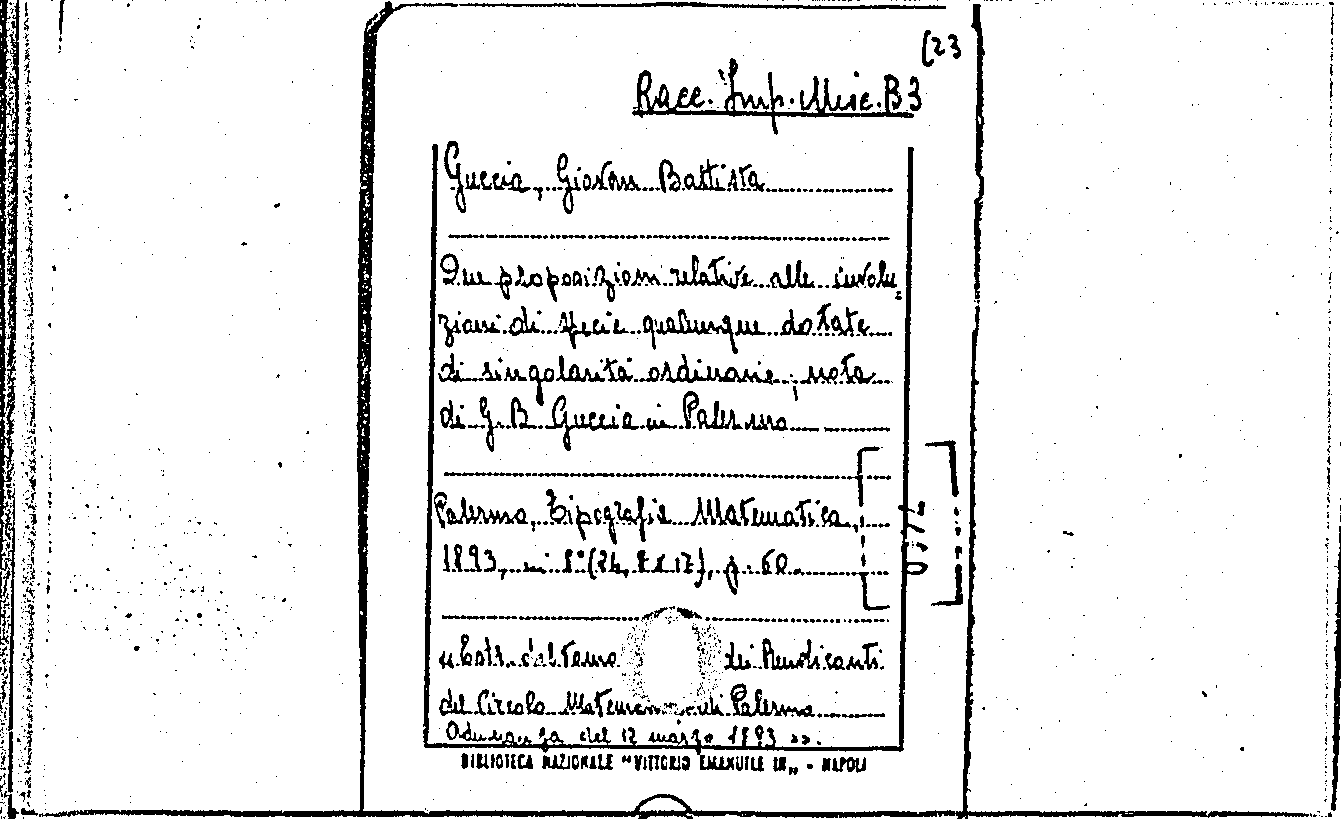 (23
Racc. Imp. Misc. B3
Guccia, Giovan Battista
Due proposizioni relative alle involu=
zioni di specie qualunque dotate
di singolarità ordinarie; nota
di G. B. Guccia in Palermo
Palermo, Tipografia Matematica,
1893, in 8° (24,8 x 17), p. 60.
«Estr. dal Tomo dei Rendiconti
del Circolo Matematico di Palermo
Adunanza del 12 marzo 1893 »».
BIBLIOTECA NAZIONALE "VITTORIO EMANUELE III„ - NAPOLI